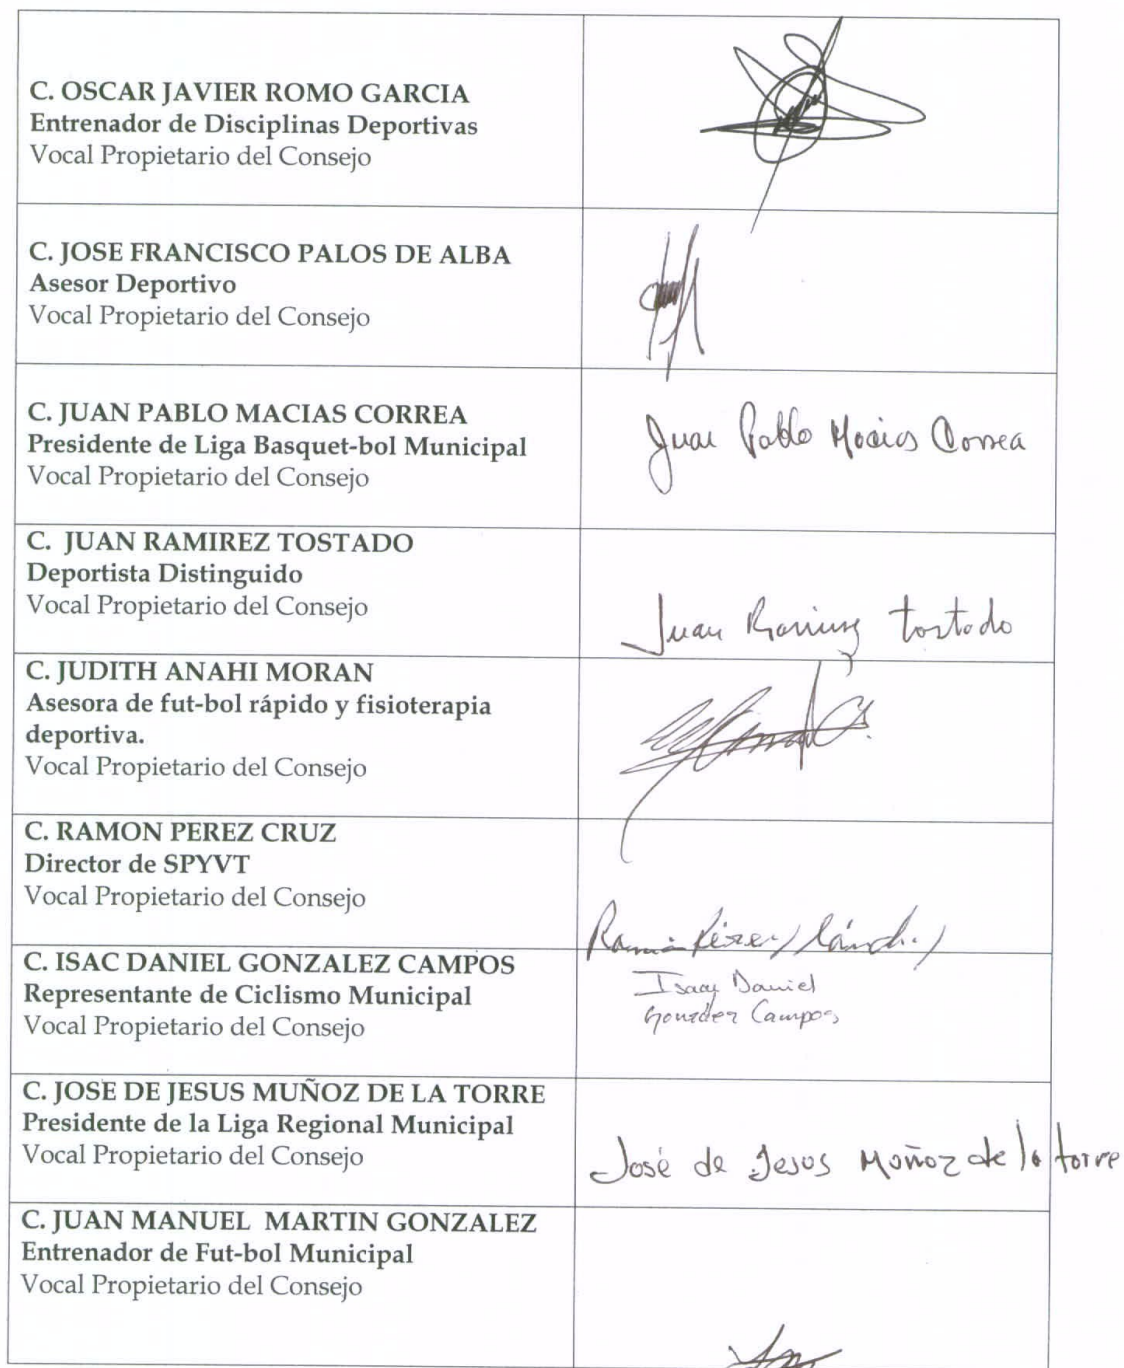 C. OSCAR JAVIER ROMO GARCIA
Entrenador de Disciplinas Deportivas
Vocal Propietario del Consejo
C. JOSE FRANCISCO PALOS DE ALBA
Asesor Deportivo
Vocal Propietario del Consejo
C. JUAN PABLO MACIAS CORREA
Presidente de Liga Basquet-bol Municipal
Vocal Propietario del Consejo
Juan Pablo Macias Correa
C. JUAN RAMIREZ TOSTADO
Deportista Distinguido
Vocal Propietario del Consejo
Juan Ramirez tostado
C. JUDITH ANAHI MORAN
Asesora de fut-bol rápido y fisioterapia
deportiva.
Vocal Propietario del Consejo
C. RAMON PEREZ CRUZ
Director de SPYVT
Vocal Propietario del Consejo
Ramón Pérez
C. ISAC DANIEL GONZALEZ CAMPOS
Representante de Ciclismo Municipal
Vocal Propietario del Consejo
Isaac Daniel
González Campos
C. JOSE DE JESUS MUÑOZ DE LA TORRE
Presidente de la Liga Regional Municipal
Vocal Propietario del Consejo
José de Jesus Muñoz de la torre
C. JUAN MANUEL MARTIN GONZALEZ
Entrenador de Fut-bol Municipal
Vocal Propietario del Consejo